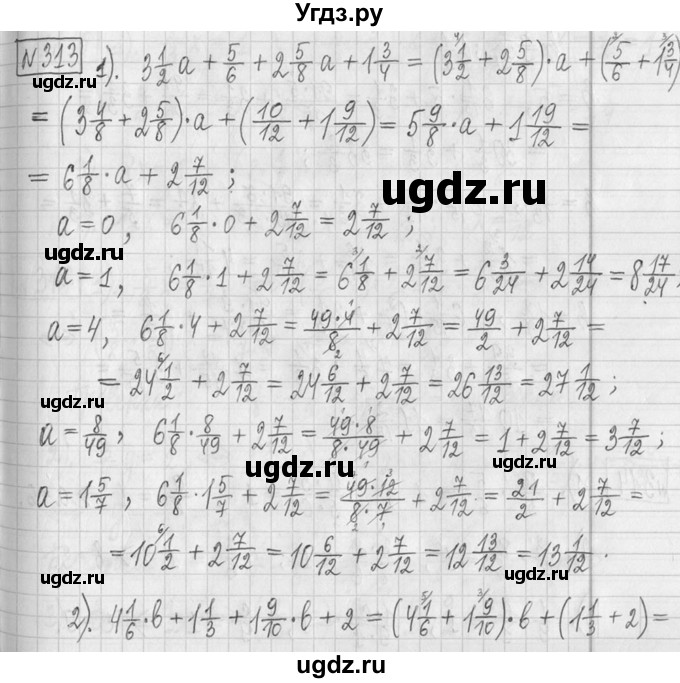 Угдз.ру
№313 1). 3 1/2 a + 5/6 + 2 5/8 a + 1 3/4 = (3 1/2 + 2 5/8)·a + (5/6 + 1 3/4)
= (3 4/8 + 2 5/8)·a + (10/12 + 1 9/12) = 5 9/8·a + 1 19/12 =
= 6 1/8·a + 2 7/12 ;
ugdz.ru ugdz.ru
a=0, 6 1/8·0 + 2 7/12 = 2 7/12 ;
ugdz.ru ugdz.ru
a=1, 6 1/8·1 + 2 7/12 = 6 1/8 + 2 7/12 = 6 3/24 + 2 14/24 = 8 17/24,
a=4, 6 1/8·4 + 2 7/12 = 49·4/8 + 2 7/12 = 49/2 + 2 7/12 =
= 24 1/2 + 2 7/12 = 24 6/12 + 2 7/12 = 26 13/12 = 27 1/12 ;
ugdz.ru ugdz.ru
a = 8/49, 6 1/8·8/49 + 2 7/12 = 49·8/8·49 + 2 7/12 = 1 + 2 7/12 = 3 7/12 ;
ugdz.ru
a = 1 5/7, 6 1/8·1 5/7 + 2 7/12 = 49·12/8·7 + 2 7/12 = 21/2 + 2 7/12 =
= 10 1/2 + 2 7/12 = 10 6/12 + 2 7/12 = 12 13/12 = 13 1/12 .
ugdz.ru ugdz.ru
2). 4 1/6·b + 1 1/3 + 1 9/10·b + 2 = (4 1/6 + 1 9/10)·b + (1 1/3 + 2) =
ugdz.ru